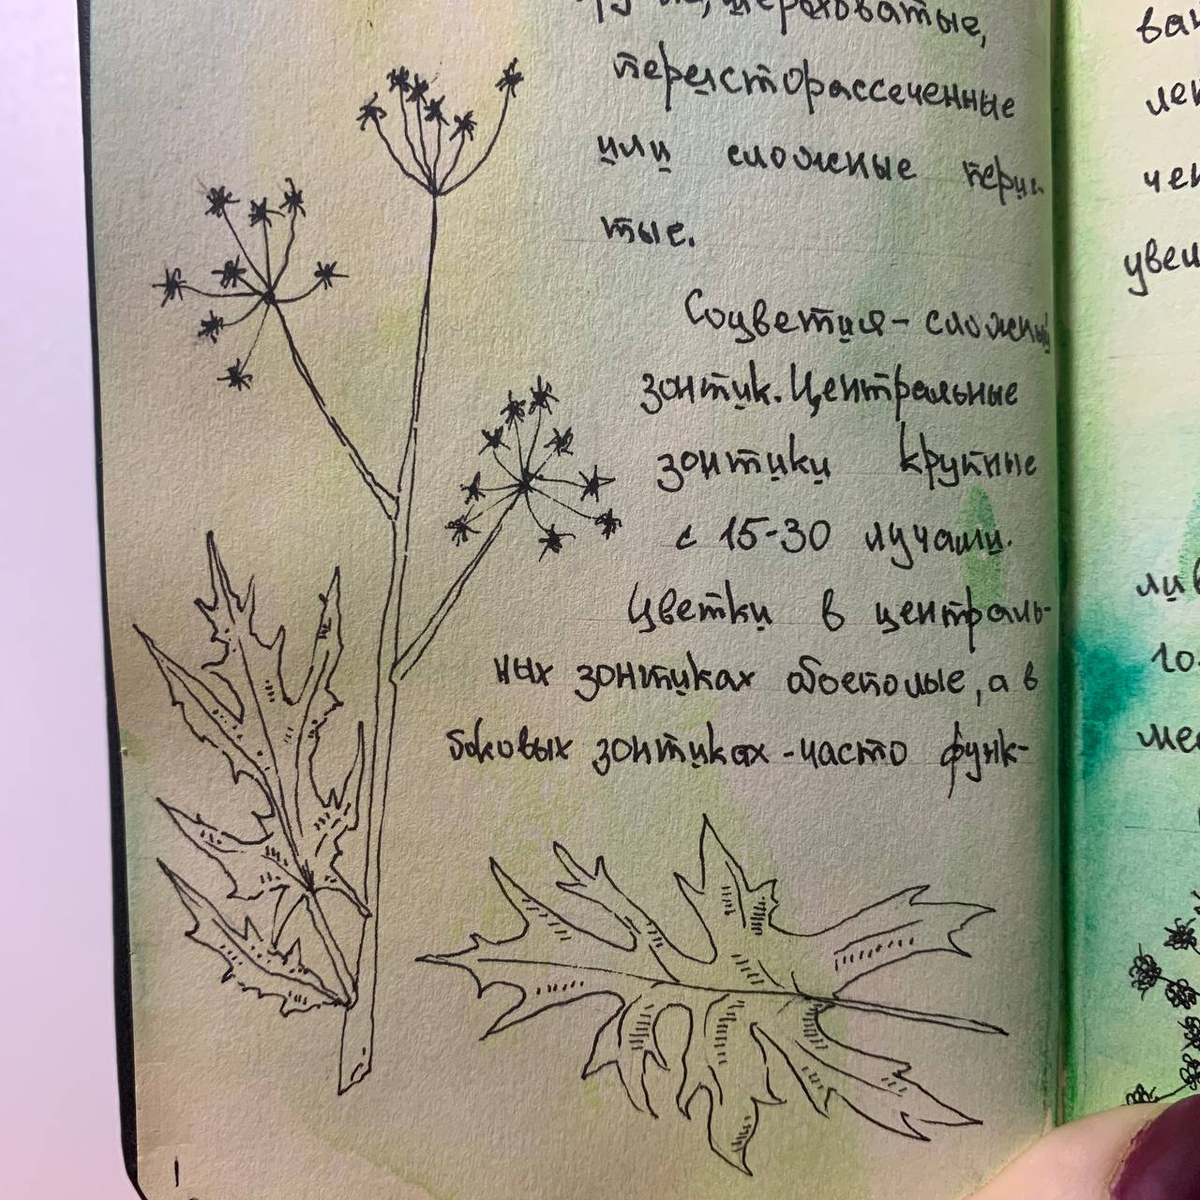 шероховатые,
перисторассеченные
или сложные перис
тые.
Соцветия - сложный
зонтик. Центральные
зонтики крупные
с 15-30 лучами.
Цветки в централь-
ных зонтиках обоеполые, а в
боковых зонтиках - часто функ-
увели